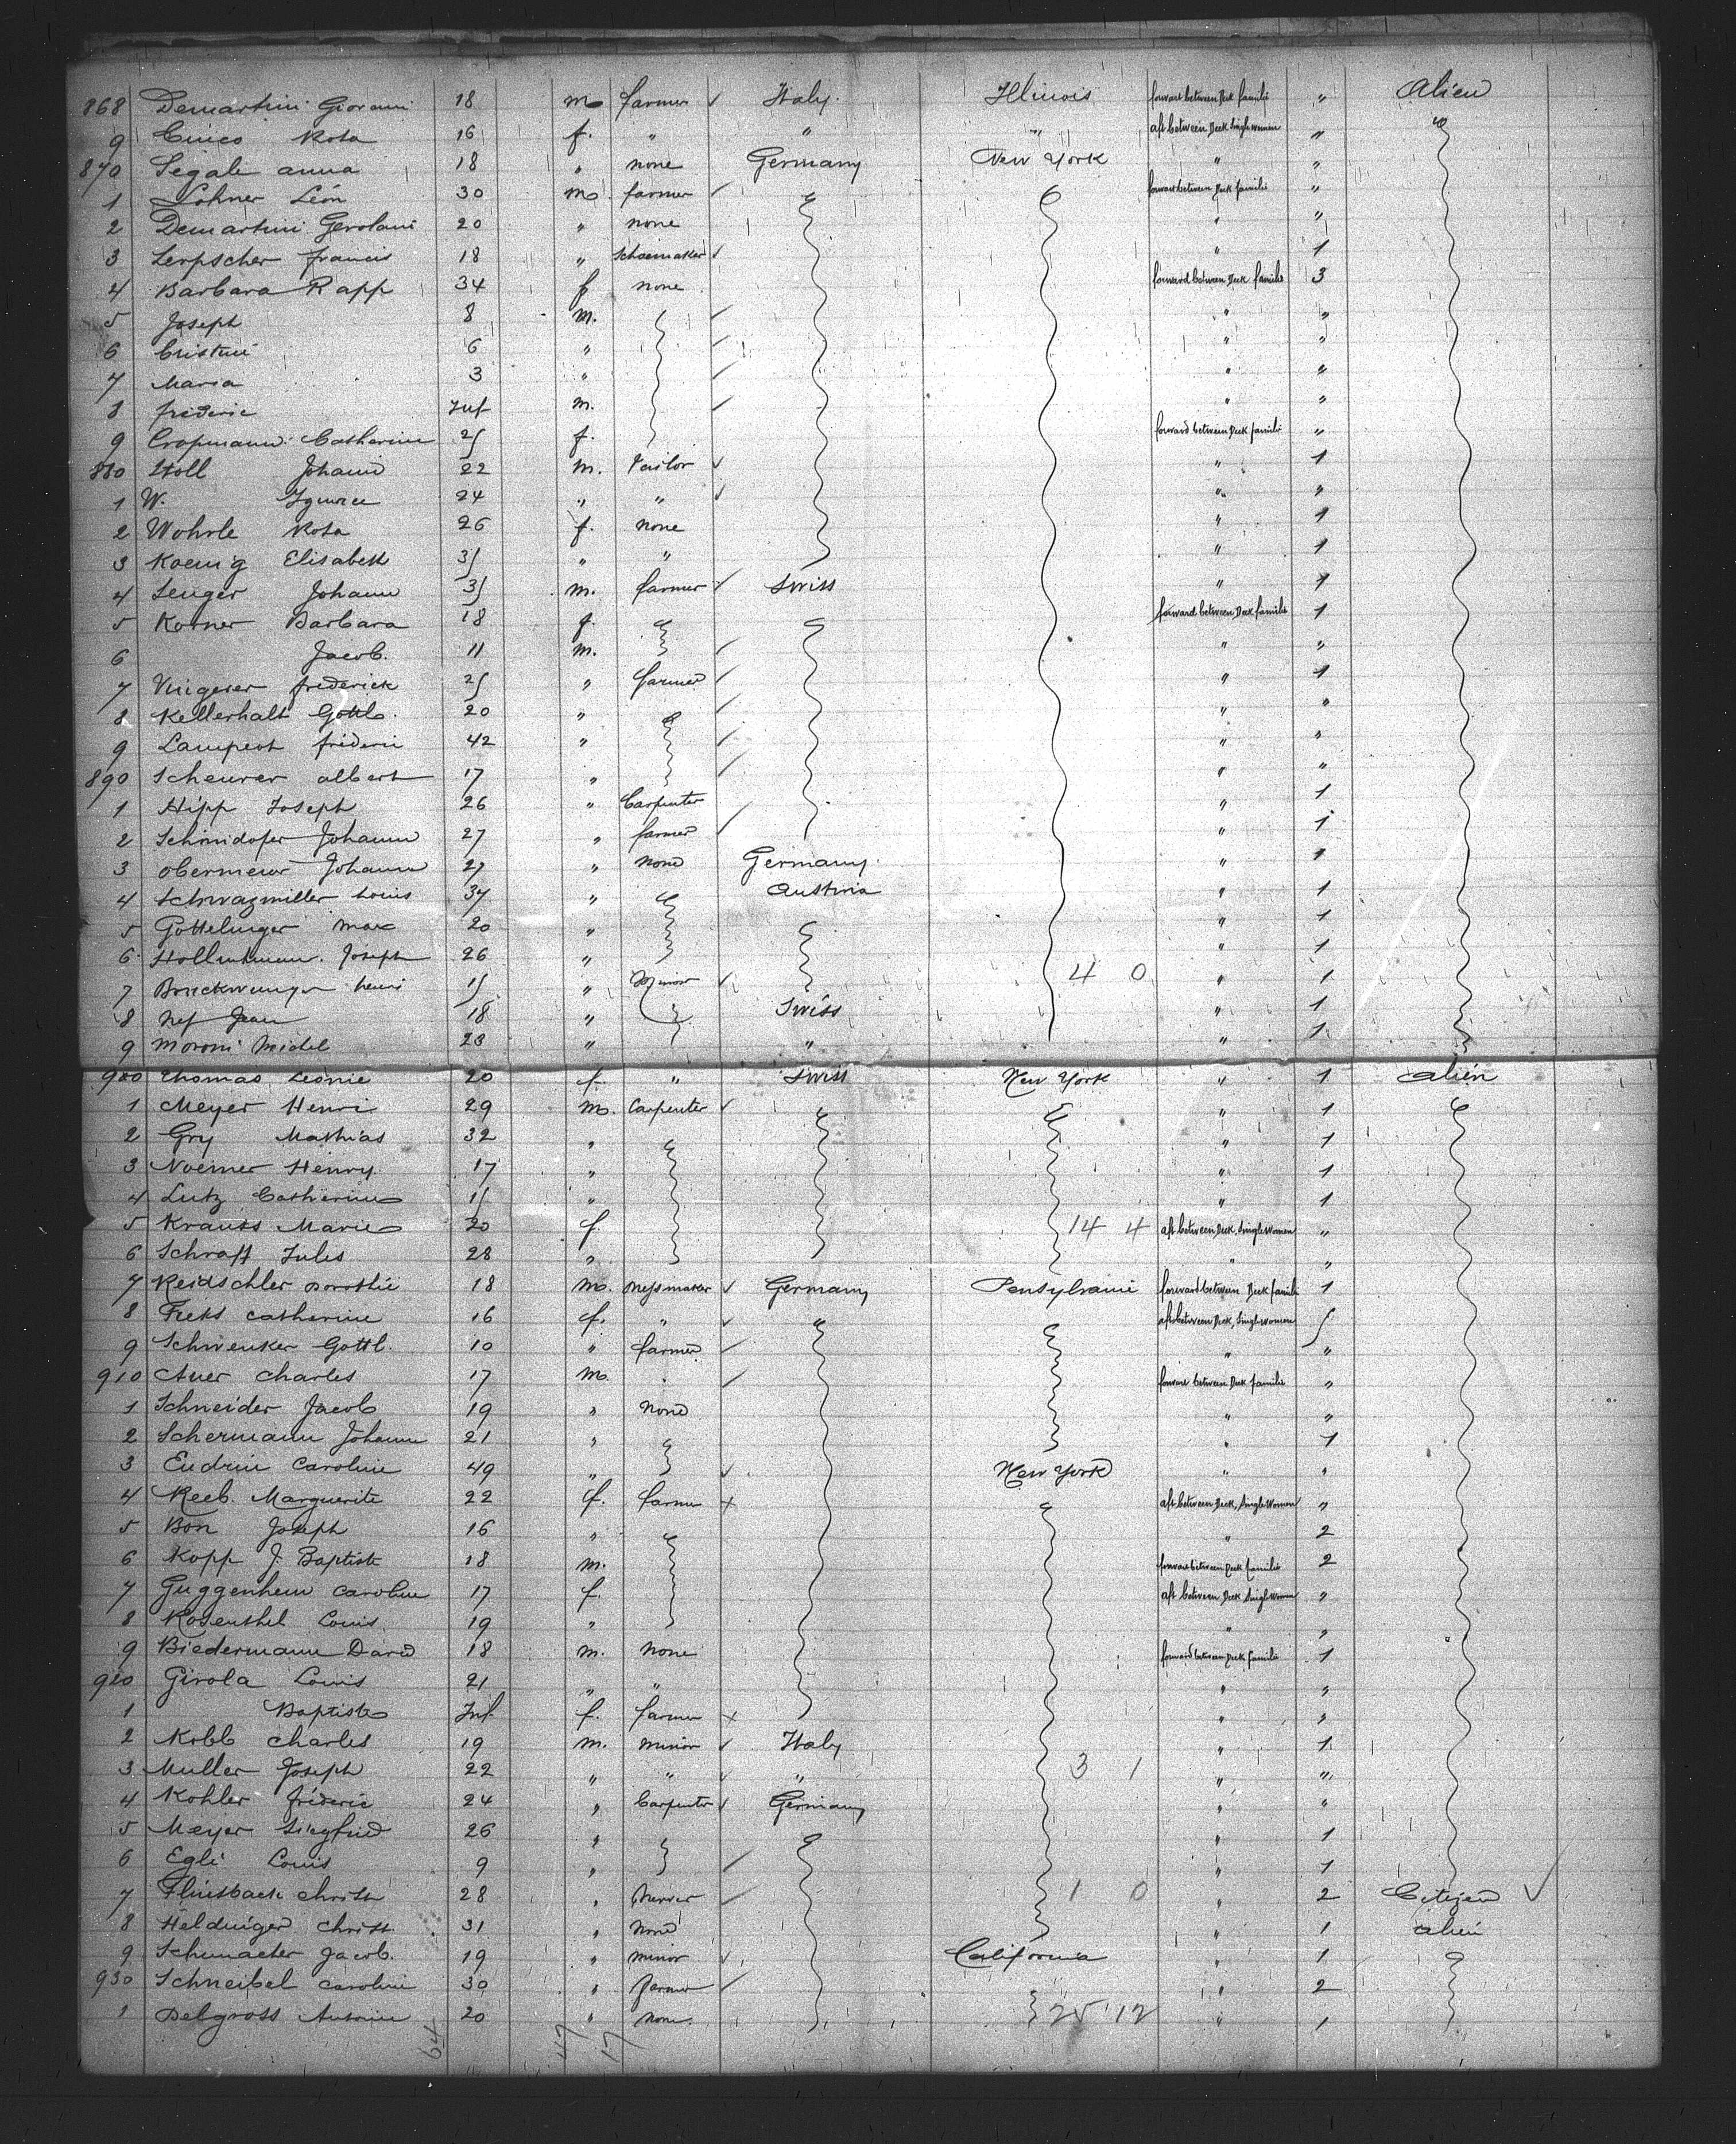 868 Demartini Giovani 18 m farmer ✓ Italy. Illinois forward between Deck famili " Alien
9 Cuneo Rosa 16 f. " " " aft between Deck Single women "
870 Segale anna 18 " none Germany New York " "
1 Lohner Léon 30 m. farmer ✓ forward between Deck famili "
2 Demartini Gerolani 20 " none " "
3 Lerpscher francis 18 " Schoemaker ✓ " 1
4 Barbara Rapp 34 f none forward between Deck famili 3
5 Joseph 8 m. " "
6 Cristini 6 " " "
7 Maria 3 " " "
8 frederic Inf m. " "
9 Cropmann Catherine 25 f. forward between Deck famili "
880 Stoll Johann 22 m. Tailor ✓ " 1
1 W. 24 " " ✓ " "
2 Wohrle Rosa 26 f. none " 1
3 Koenig Elisabeth 35 " " " 1
4 Senger Johann 35 m. farmer ✓ Swiss " 1
5 Korner Barbara 18 f. forward between Deck famili 1
6 Jacob. 11 m. " "
7 frederick 25 " farmer ✓ " 1
8 Kellerhalt Gottlb. 20 " " "
9 Lampert fréderic 42 " " "
890 Scheurer albert 17 " " "
1 Hipp Joseph 26 " Carpenter " 1
2 Schmidofer Johann 27 " farmer ✓ " 1
3 obermeur Johann 27 " none Germany. " 1
4 Schwazmiller Louis 34 " Austria " 1
5 Gottelinger Max 20 " " 1
6 Joseph 26 " " 1
7 henri 15 " Minor ✓ 4 0 " 1
8 Nef Jean 18 " Swiss " 1
9 Moroni Michel 23 " " " 1
900 Thomas Leonie 20 f. " Swiss New York " 1 alien
1 Meyer Henri 29 m. Carpenter ✓ " 1
2 Gry Mathias 32 " " 1
3 Noemer Henry. 17 " " 1
4 Lutz Catherine 15 " " 1
5 Krauss Marie 20 f. 14 4 aft between Deck, Single Women "
6 Schraft Jules 28 " " "
7 Reidschler Dorothie 18 m. Messmaker ✓ Germany Pensylvanie forward between Deck famili 1
8 Freks catherine 16 f. " ✓ " aft between Deck, Single women
9 Schwenker Gottl. 10 " farmer ✓ " "
910 Auer Charles 17 m. " forward between Deck famili "
1 Schneider Jacob 19 " None " "
2 Schermann Johann 21 " " 1
3 Eudrin Caroline 49 " ✓ New York " "
4 Reeb. Marguerite 22 f. farmer + aft between Deck, Single Women "
5 Bon Joseph 16 " " 2
6 Kopp J. Baptiste 18 m. forward between Deck famili 2
7 Guggenheim Caroline 17 f. aft between Deck Single Women "
8 Rosenthel Louis 19 " " "
9 Biedermann David 18 m. None forward between Deck famili 1
920 Girola Louis 21 " " " "
1 Baptiste Inf. f. farmer + " "
2 Kobb charles 19 m. minor ✓ Italy " 1
3 Muller Joseph 22 " " ✓ " 3 1 " "
4 Kohler fréderic 24 " Carpenter ✓ Germany " "
5 Meyer Siegfried 26 " " 1
6 Egli Louis 9 " " 1
7 Christ 28 " ✓ 1 0 " 2 Citizen ✓
8 Helduiger Christ. 31 " None " 1 alien
9 Schumacher Jacob. 19 " minor ✓ California " 1
930 Schneibel Caroline 30 " farmer ✓ " 2
1 Delgross Antoine 20 " none. 25 12 " 1
64 47 17